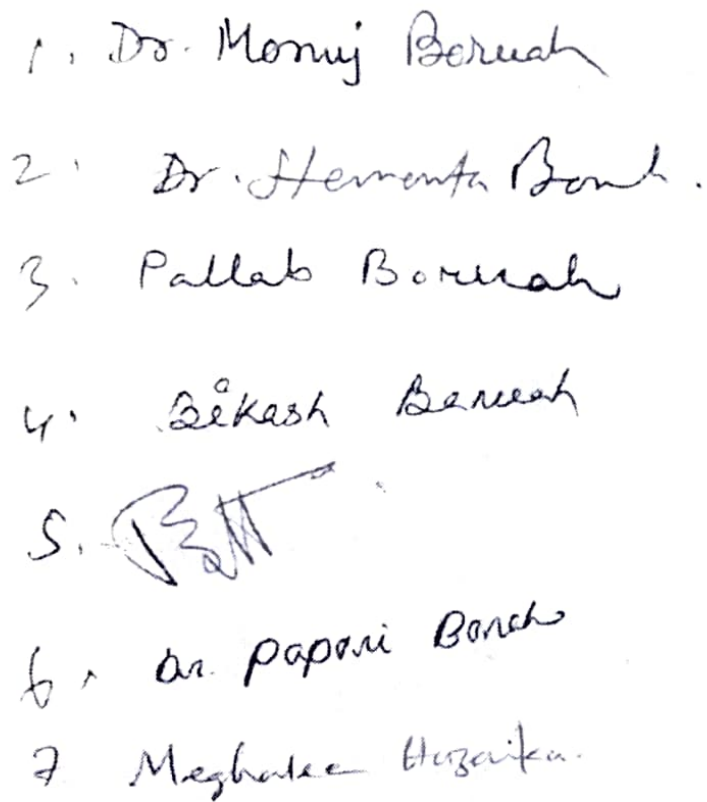 1. Dr. Monuj Boruah
2. Dr. Hemanta
3. Pallab Boruah
4. Bikash Baruah
5.
6. Dr. Papori Borah
7 Meghalee Hazarika.